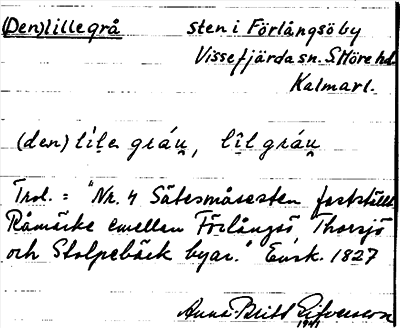 (Den)lillegrå sten i Förlångsö by
Vissefjärda sn. S. Möre hd.
Kalmar l.
(den) lìl̥e gráu̯, lîl gráu̯
Trol. = "Nr. 4 Sätesmåsesten fastställt
Råmärke emellan Förlångsö Thorsjö
och Stolpebäck byar." Ensk. 1827
Anna-Britt
1941